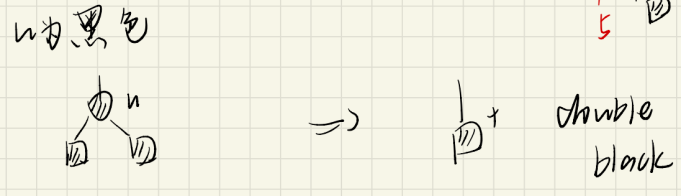 n为黑色
5
n
+
double
black